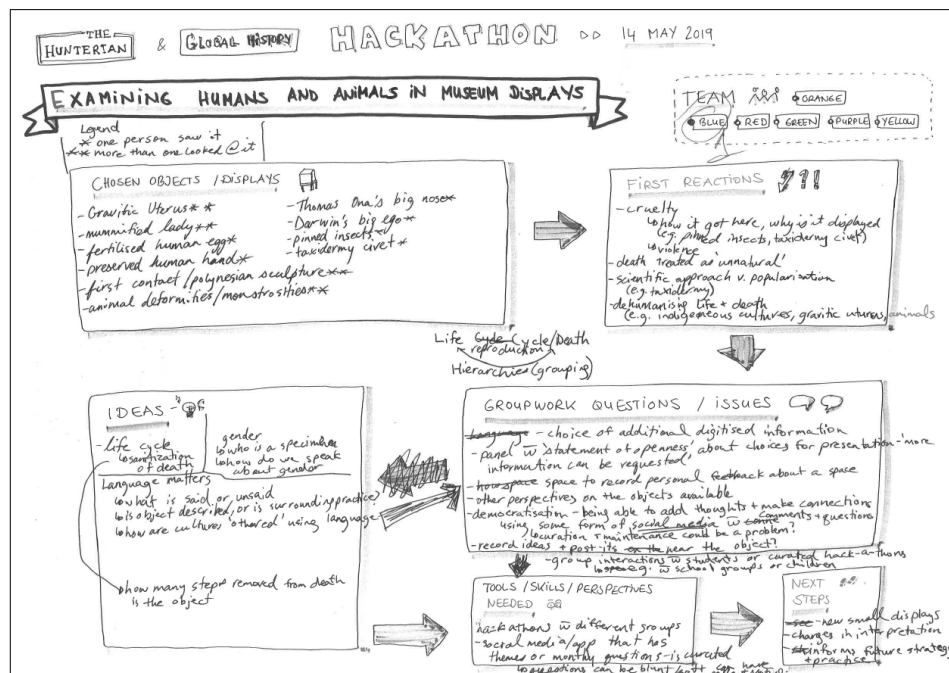 THE
HUNTERIAN & GLOBAL HISTORY HACKATHON ▷▷ 14 MAY 2019
EXAMINING HUMANS AND ANIMALS IN MUSEUM DISPLAYS
TEAM ORANGE
BLUE RED GREEN PURPLE YELLOW
Legend
* one person saw it
** more than one looked @ it
CHOSEN OBJECTS / DISPLAYS
- Gravitic Uterus**
- mummified lady**
- fertilised human egg*
- preserved human hand*
- first contact/polynesian sculpture**
- animal deformities/monstrosities**
- Thomas Ona's big nose*
- Darwin's big ego*
- pinned insects*
- taxidermy civet*
FIRST REACTIONS ?!
- cruelty
↳ how it got here, why is it displayed
(e.g. pinned insects, taxidermy civet)
↳ violence
- death treated as 'unnatural'
- scientific approach v. popularization
(e.g. taxidermy)
- dehumanising life + death
(e.g. indigeneous cultures, gravitic uturus, animals
Life Cycle Cycle/Death
reproduction
Hierarchies (grouping)
IDEAS
- life cycle
↳ sanitization
of death
gender
↳ who is a specimen
↳ how do we speak
about gender
Language matters
↳ what is said or unsaid
↳ is object described, or is surrounding practice
↳ how are cultures 'othered' using language
↳ how many steps removed from death
is the object
GROUPWORK QUESTIONS / ISSUES
Language - choice of additional digitised information
- panel w 'statement of openness', about choices for presentation - 'more
information can be requested,
- how space space to record personal feedback about a space
- other perspectives on the objects available
- democratisation - being able to add thoughts + make connections
using some form of social media w comments + questions
↳ curation + maintenance could be a problem?
- record ideas + post-its on the near the object?
- group interactions w students or curated hack-a-thons
e.g. w school groups or children
TOOLS / SKILLS / PERSPECTIVES
NEEDED
hackathons w different groups
- social media/app that has
themes or monthly questions - is curated
↳ questions can be blunt
NEXT
STEPS
- see - new small displays
- changes in interpretation
- informs future strategy
+ practice